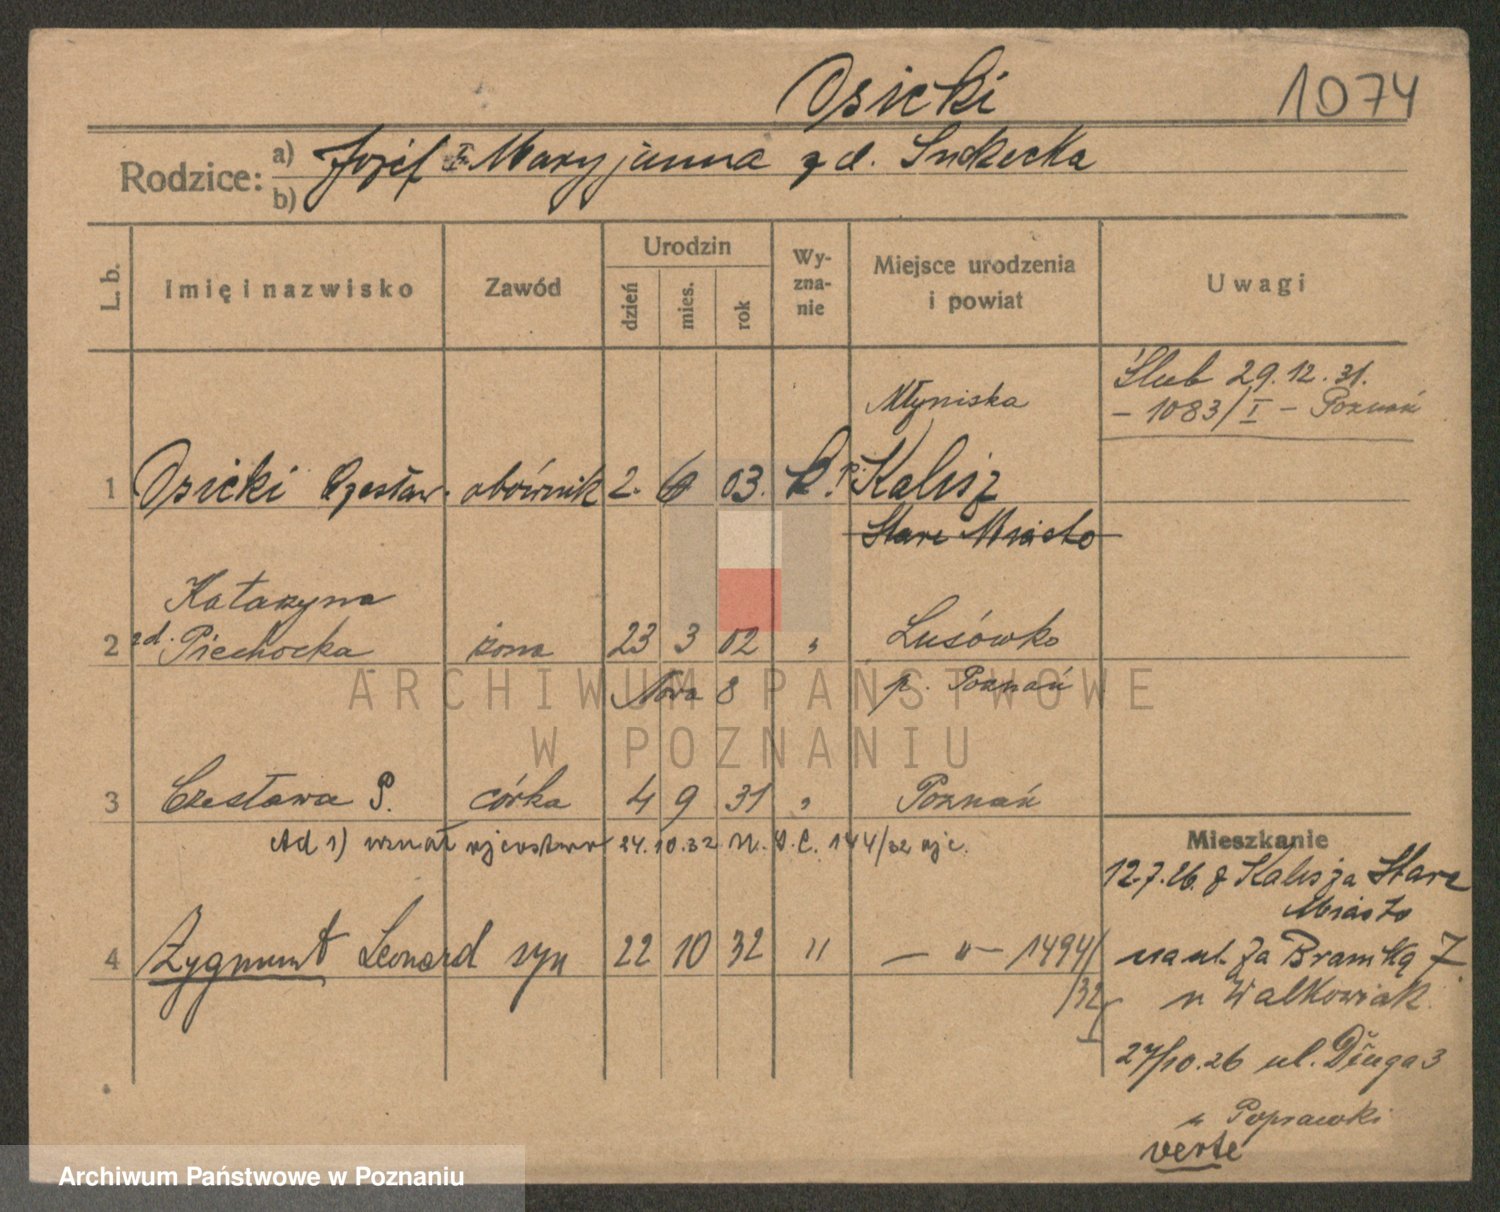 Osicki
1074
Rodzice:
a) Józef i Maryjanna z d. Suckecka
b)
L. b.
Imię i nazwisko
Zawód
Urodzin
dzień
mies.
rok
Wy-
zna-
nie
Miejsce urodzenia
i powiat
Uwagi
Ślub 29.12.31.
– 1083/I – Poznań
Młyniska
1 Osicki Czesław. obównik 2. 6 03. R. Kalisz
Stare Miasto
Katarzyna
2 zd. Piechocka żona 23 3 02 " Lusówko
Nowa 8 p. Poznań
3 Czesława P. córka 4 9 31 " Poznań
Ad 1) uznał ojcostwo 24.10.32 N.S.C. 144/32
4 Zygmunt Leonard syn 22 10 32 " – " – 1494/
/32
I
Mieszkanie
12.7.26. z Kalisza Stare
Miasto
na ul. Za Bramką 7
u Walkowiak
27/10.26 ul. Długa 3
u Poprawki
verte
ARCHIWUM PAŃSTWOWE
W POZNANIU
Archiwum Państwowe w Poznaniu